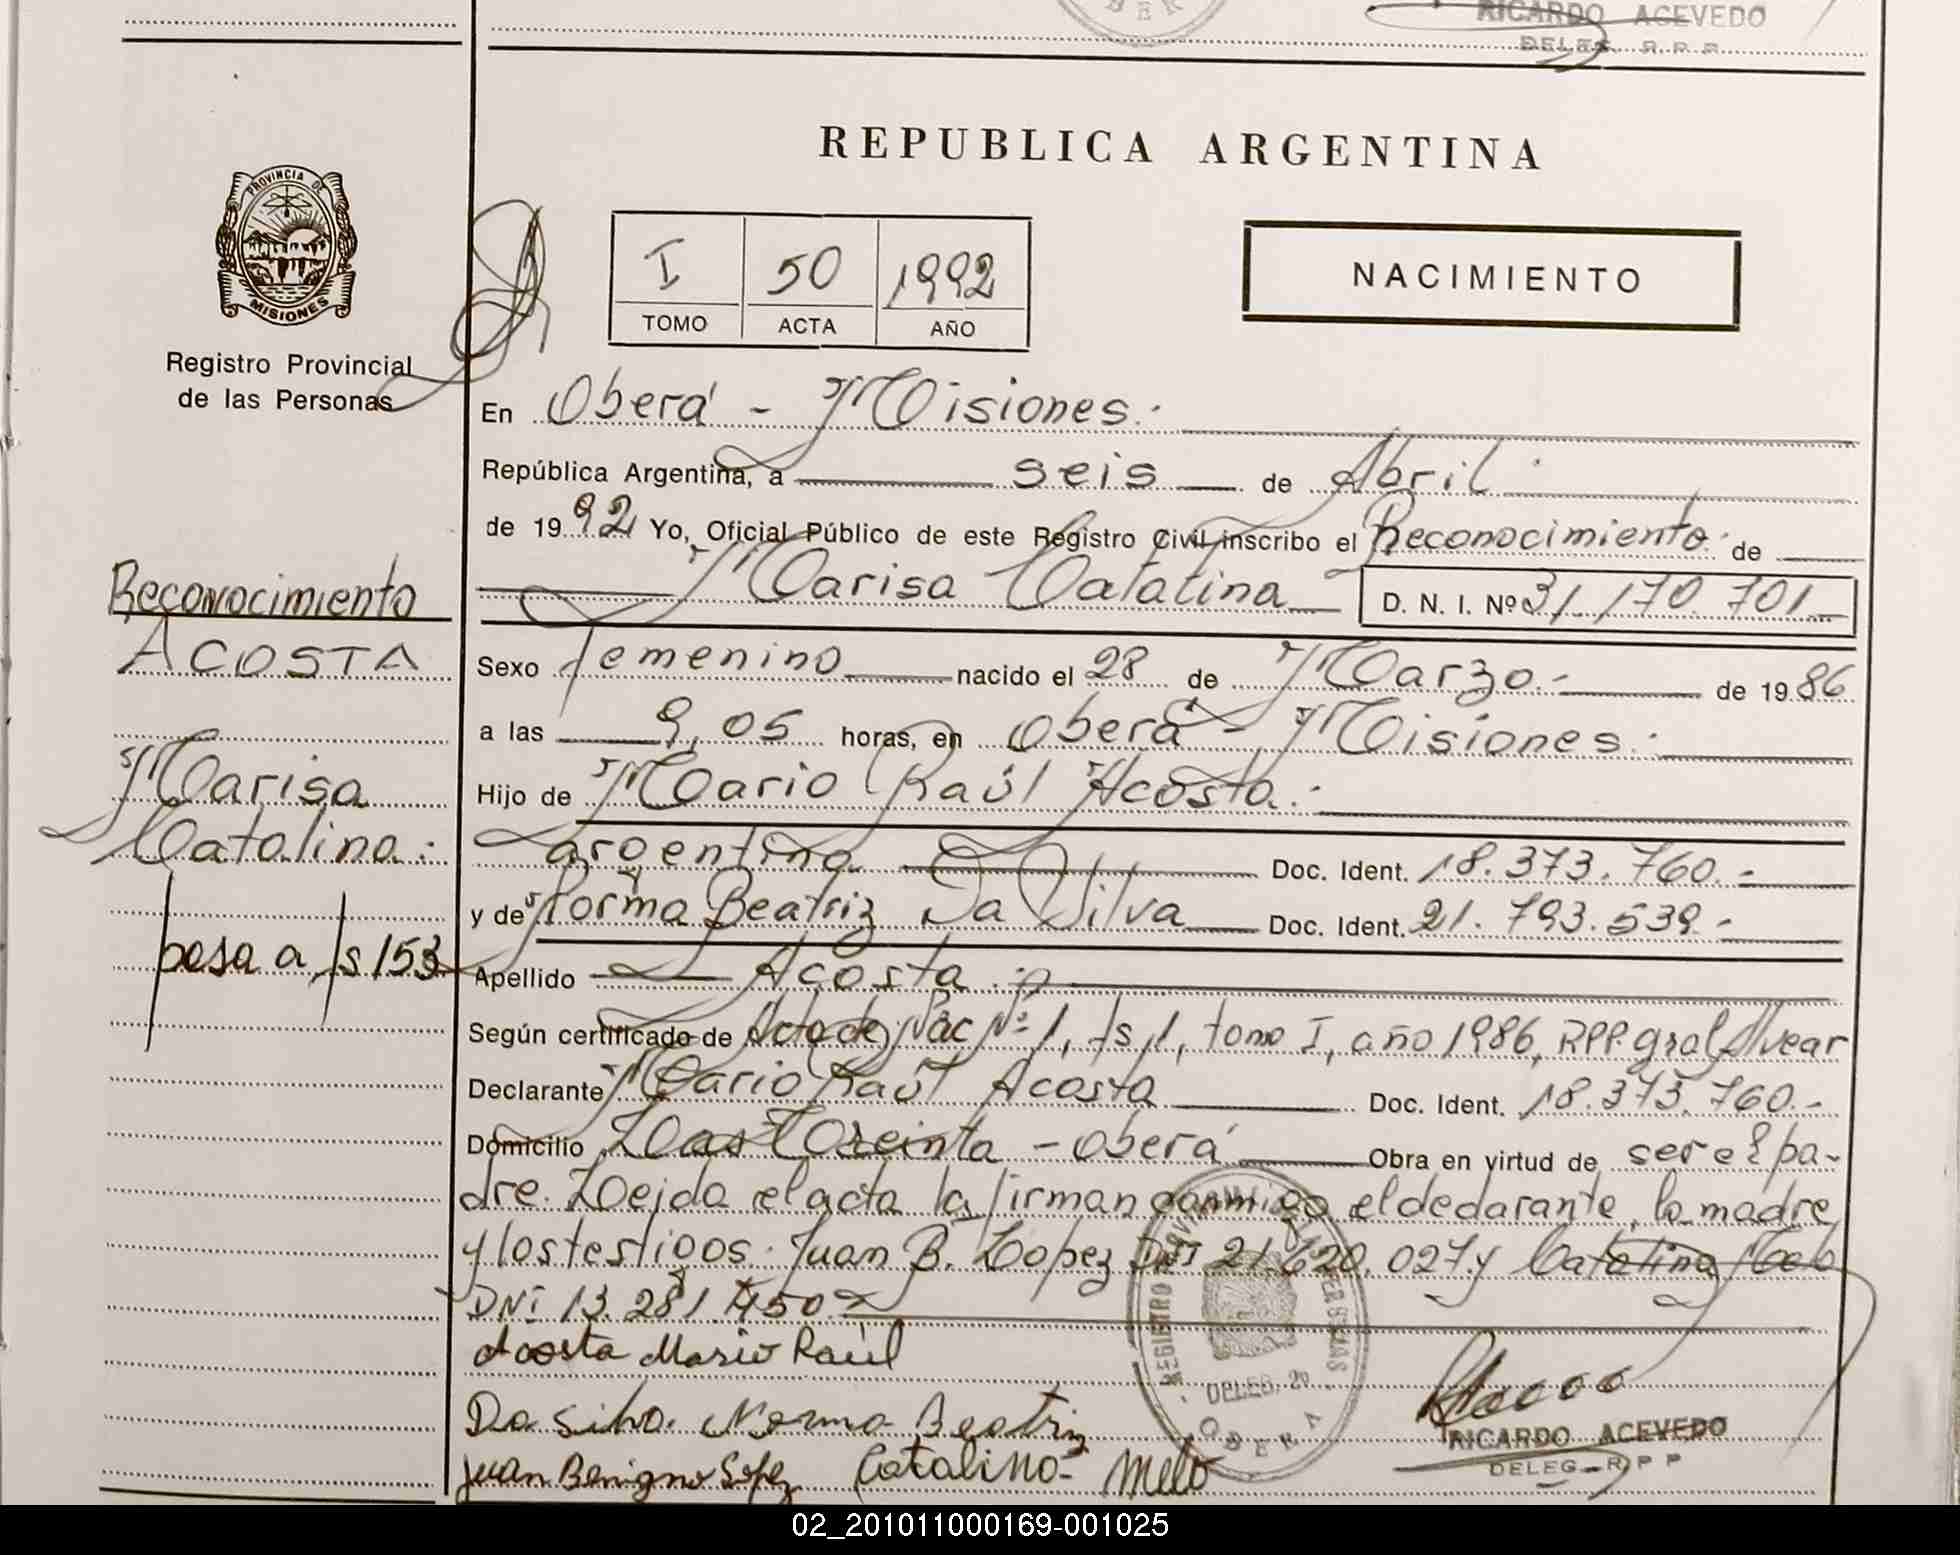 RICARDO ACEVEDO
DELEG. R. P. P.
REPUBLICA ARGENTINA
PROVINCIA DE
MISIONES
Registro Provincial
de las Personas
I 50 1992
TOMO ACTA AÑO
NACIMIENTO
En Oberá - Misiones.-
República Argentina, a seis de Abril
de 1992 Yo, Oficial Público de este Registro Civil inscribo el Reconocimiento de
Marisa Catalina D. N. I. Nº 31.170.701
Reconocimiento
ACOSTA
Marisa
Catalina.
pasa a fs 153
Sexo femenino nacido el 28 de Marzo.- de 1986
a las 9,05 horas, en Oberá - Misiones.-
Hijo de Mario Raúl Acosta.-
argentina Doc. Ident. 18.373.760.-
y de Norma Beatriz Da Silva Doc. Ident. 21.793.539.-
Apellido Acosta
Según certificado de Acta de Nac Nº 1, fs 1, tomo I, año 1986, RPP. gral Alvear
Declarante Mario Raúl Acosta Doc. Ident. 18.373.760.-
Domicilio Las Treinta - Oberá Obra en virtud de ser el pa-
dre. Leida el acta la firman conmigo el declarante, la madre
y los testigos. Juan B. Lopez DNI 21.620.027 y Catalina Melo
DNI 13.281.450
Acosta Mario Raúl
Da Silva Norma Beatriz
Juan Benigno Lopez Catalino Melo
REGISTRO PROVINCIAL PERSONAS
DELEG. 20
OBERA
RICARDO ACEVEDO
DELEG. R P P
02_201011000169-001025